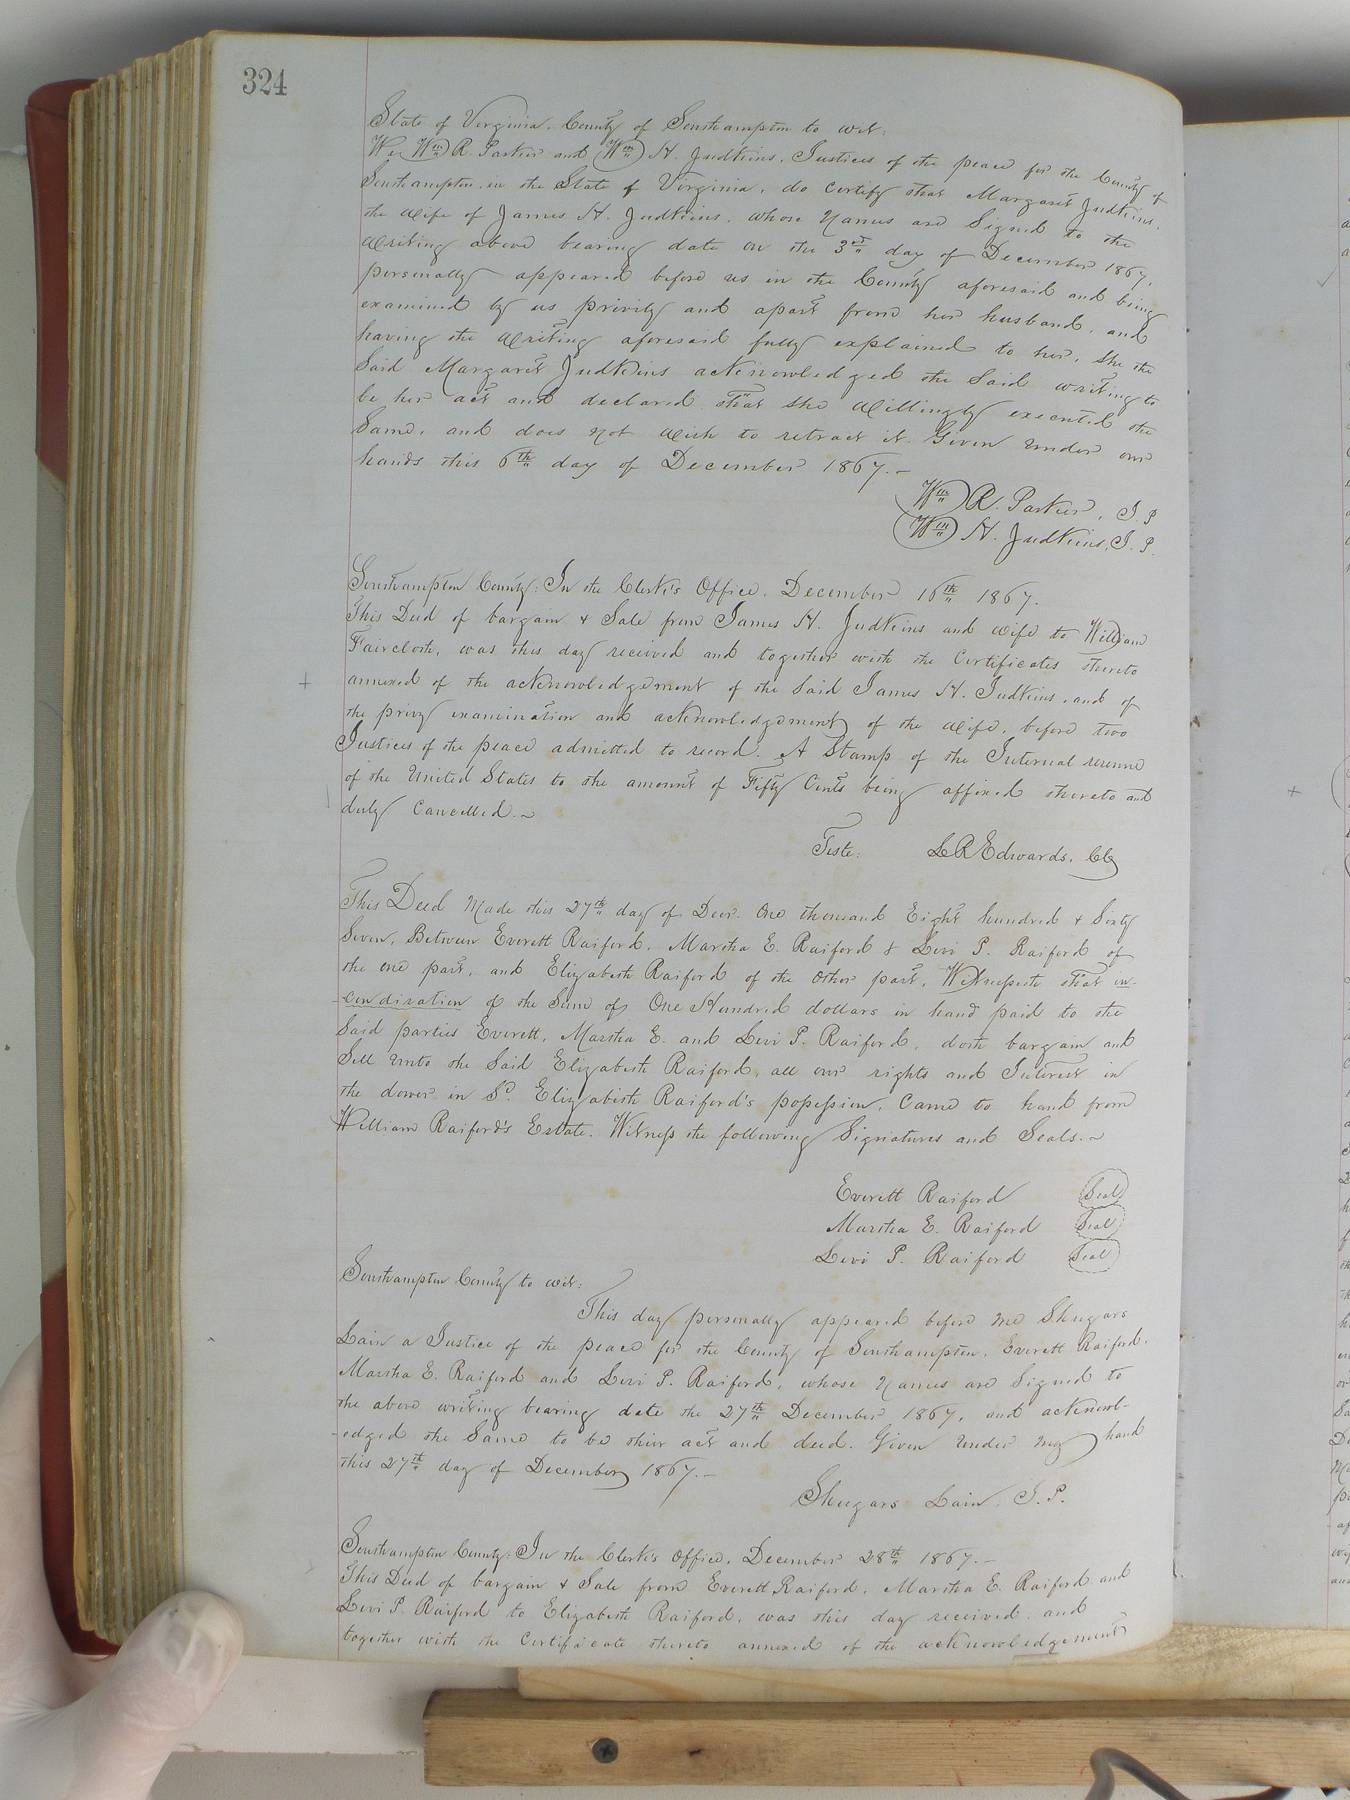 324
State of Virginia, County of Southampton to wit:
We Wm R. Parker and Wm H. Judkins, Justices of the peace for the County of
Southampton, in the State of Virginia, do certify that Margaret Judkins,
the wife of James H. Judkins, whose names are Signed to the
writing above bearing date on the 3rd day of December 1867,
personally appeared before us in the County aforesaid and being
examined by us privily and apart from her husband, and
having the writing aforesaid fully explained to her, She the
Said Margaret Judkins acknowledged the Said writing to
be her act and declared that She willingly executed the
Same, and does not wish to retract it. Given under our
hands this 6th day of December 1867.—
Wm R. Parker, J. P
Wm H. Judkins, J. P.
Southampton County: In the Clerk's Office, December 16th 1867.
This Deed of bargain & Sale from James H. Judkins and wife to William
Faircloth, was this day received and together with the Certificates thereto
annexed of the acknowledgement of the Said James H. Judkins, and of
the privy examination and acknowledgement of the wife, before two
Justices of the peace admitted to record. A Stamp of the Internal revenue
of the United States to the amount of Fifty Cents being affixed thereto and
duly Cancelled.~
Teste: L R Edwards, Clk
This Deed Made this 27th day of Decr. One thousand Eight hundred & Sixty
Seven, Between Everett Raiford, Martha E. Raiford & Levi P. Raiford of
the one part, and Elizabeth Raiford of the other part, Witnesseth that in-
-condiration of the Sum of One Hundred dollars in hand paid to the
Said parties Everett, Martha E. and Levi P. Raiford, doth bargain and
Sell unto the Said Elizabeth Raiford, all our rights and Interest in
the dower in Sd. Elizabeth Raiford's possession, Came to hand from
William Raiford's Estate. Witness the following Signatures and Seals.~
Everett Raiford Seal
Martha E. Raiford Seal
Levi P. Raiford Seal
Southampton County to wit:
This day personally appeared before me Shugars
Lain a Justice of the peace for the County of Southampton, Everett Raiford,
Martha E. Raiford and Levi P. Raiford, whose names are Signed to
the above writing bearing date the 27th December 1867, and acknowl-
-edged the Same to be their act and deed. Given under my hand
this 27th day of December 1867.—
Shugars Lain, J. P.
Southampton County: In the Clerk's Office, December 28th 1867.—
This Deed of bargain & Sale from Everett Raiford, Martha E. Raiford and
Levi P. Raiford to Elizabeth Raiford, was this day received, and
together with the Certificate thereto annexed of the acknowledgement